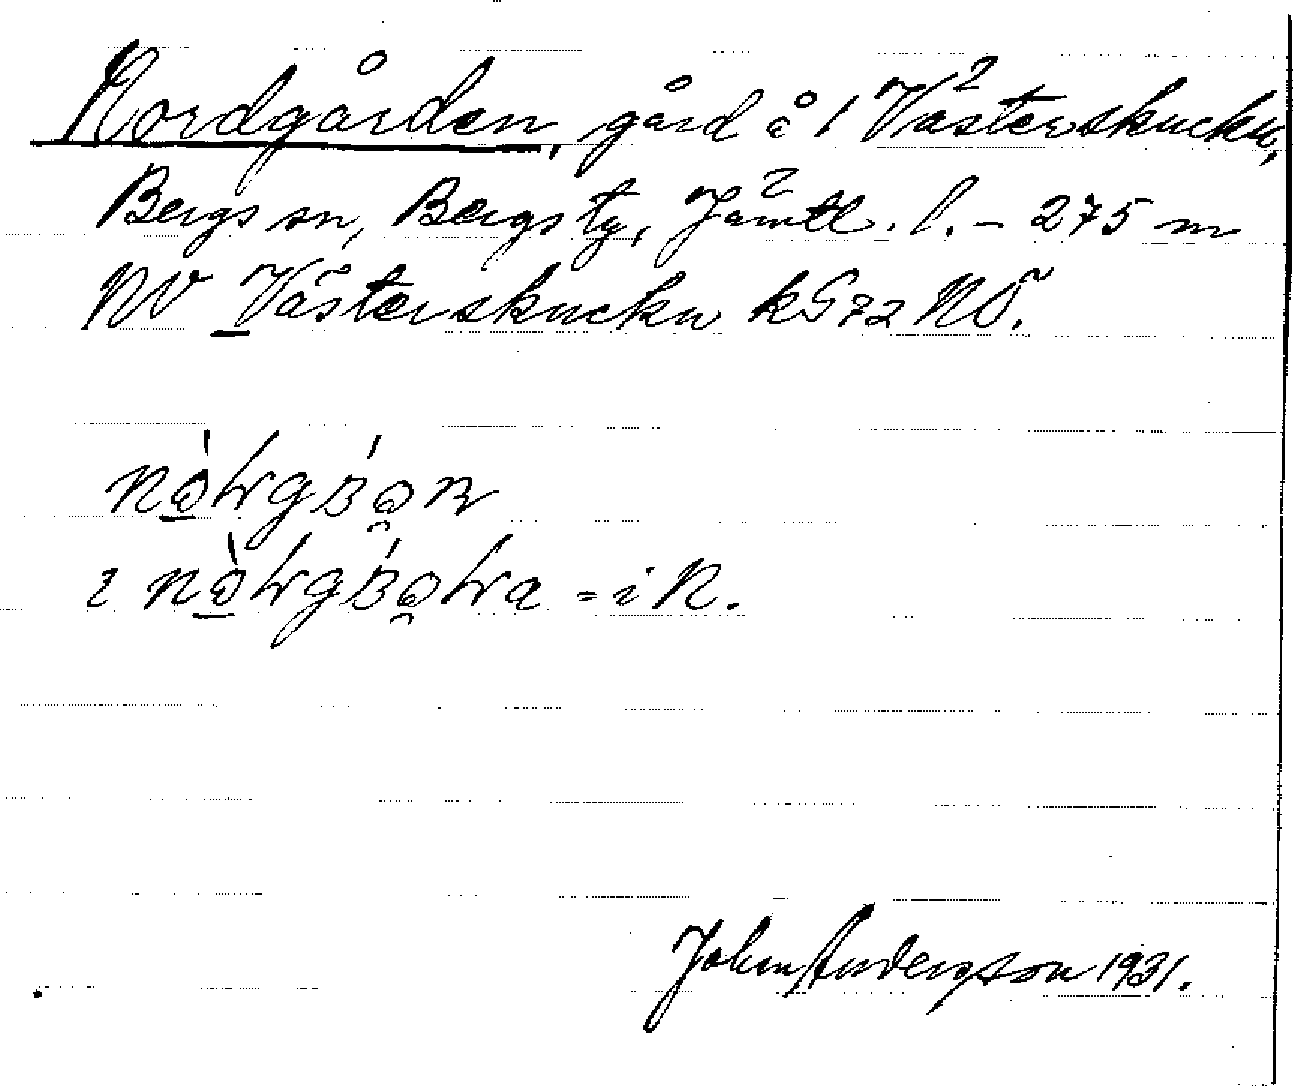 Nordgården, gård å 1 Västerskucku,
Bergs sn, Bergs tg, Jämtl. l. – 275 m
NV Västerskucku k G72 NÖ.
i = i N.
John Anderson 1931.